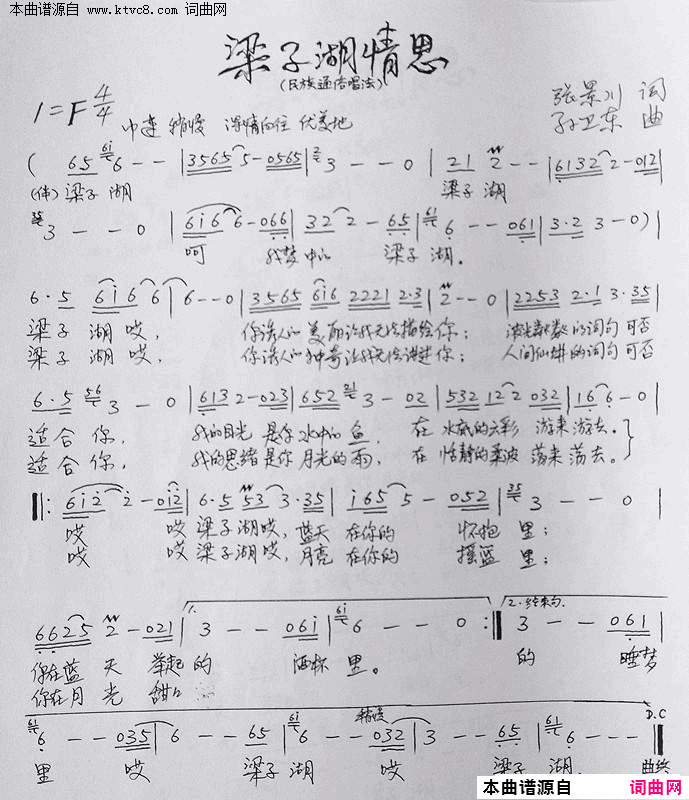 本曲谱源自 www.ktvc8.com 词曲网
梁子湖情思
(民族通俗唱法)
1=F 4/4 中速 稍慢 深情向往 优美地
张景川 词
孙卫东 曲
( 65 6i 6 - - | 3565 5 - 0565 | 2 3 - - 0 | 21 2 - - | 6132 2 - 012 |
(伴) 梁子湖 梁子湖
3 - - 0 | 6i6 6 - 066 | 32 2 - 65 | 61 6 - - 061 | 3·2 3 - 0) |
呵 我梦中的 梁子湖.
6·5 6i6 6 | 6 - - 0 | 3565 6i6 2221 2·3 | 2 - - 0 | 2253 2·1 3·35 |
梁子湖哎, 你诱人的美丽让我无法描绘你; 的词句可否
梁子湖哎, 你诱人的神奇让我无法 你; 人间仙 的词句可否
6·5 56 3 - 0 | 6132 2 - 023 | 652 3 - 02 | 532 12 2 032 | 16 6 - 0 |
适合你, 我的目光是你水中的鱼, 在水底的 游来游去.
适合你, 我的思绪是你月光的雨, 在恬静的柔波荡来荡去.
‖: 6i2 2 - 0i2 | 6·5 53 3·35 | i65 5 - 052 | 35 3 - - 0 |
哎 哎梁子湖哎, 蓝天在你的怀抱里;
哎 哎梁子湖哎, 月亮在你的摇篮里;
6625 2 - 021 | 1. 3 - - 06i | 6i 6 - - 0 :‖ 2.结束句. 3 - - 061 |
你在蓝天举起的 酒杯里. 的 睡梦
你在月光甜
稍慢 D.C
61 6 - - 035 | 6 - - 65 | 6i 6 - - 032 | 3 - - 65 | 61 6 - - - ‖
里 哎 梁子湖 哎 梁子湖. 曲终
本曲谱源自 词曲网